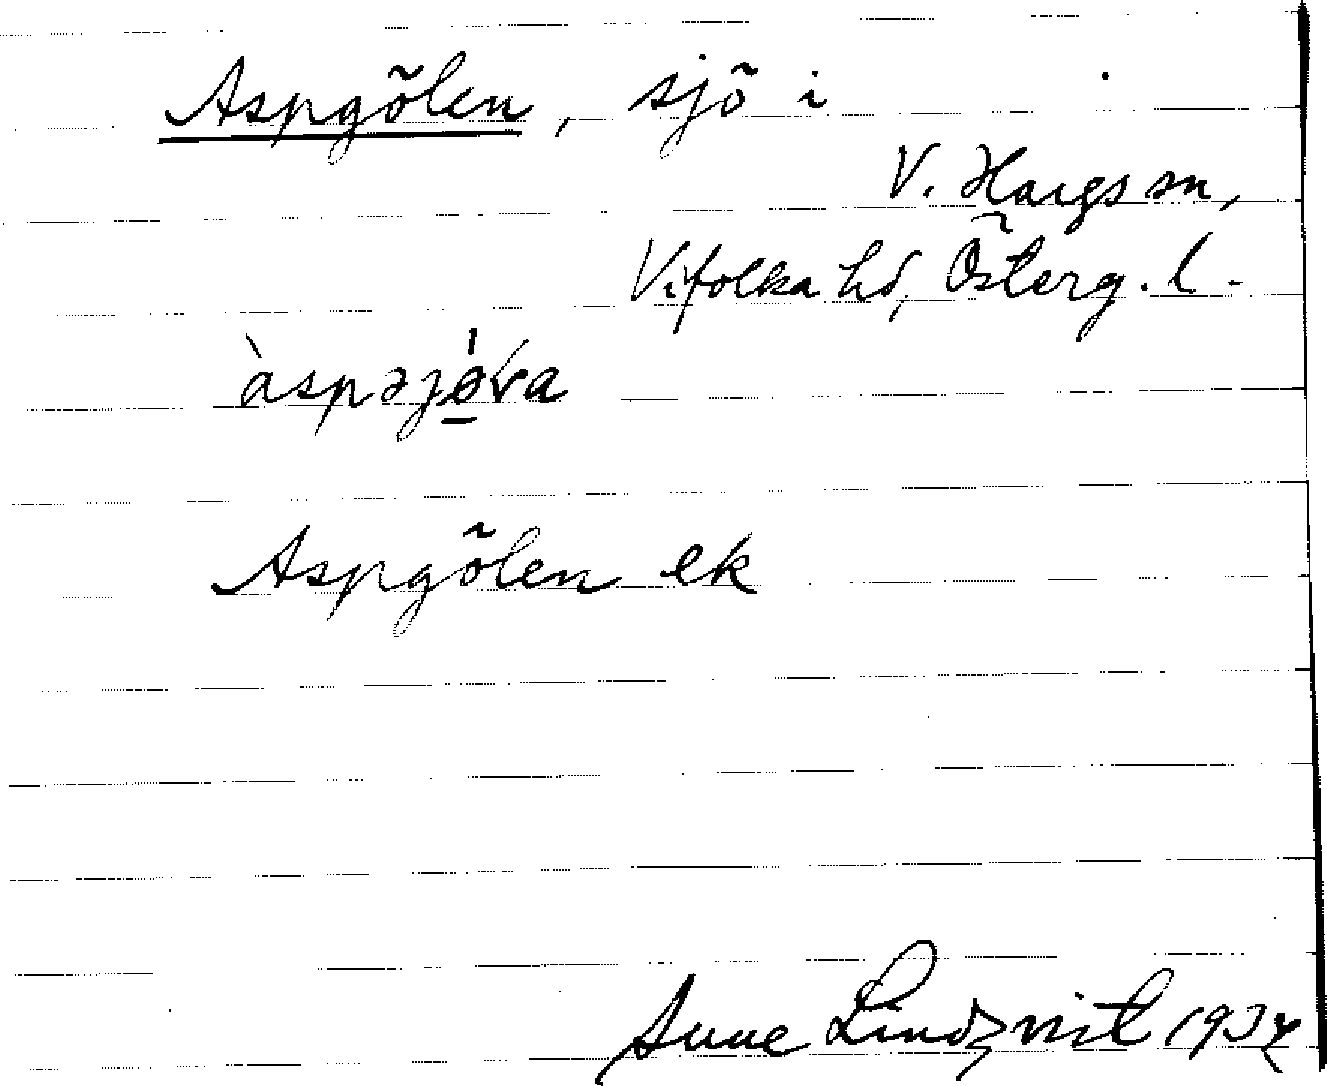 Aspgölen, sjö i
V. Hargs sn,
Vifolka hd, Österg. l.
àspəjǿ̱ra
Aspgölen ek
Sune Lindqvist 1934